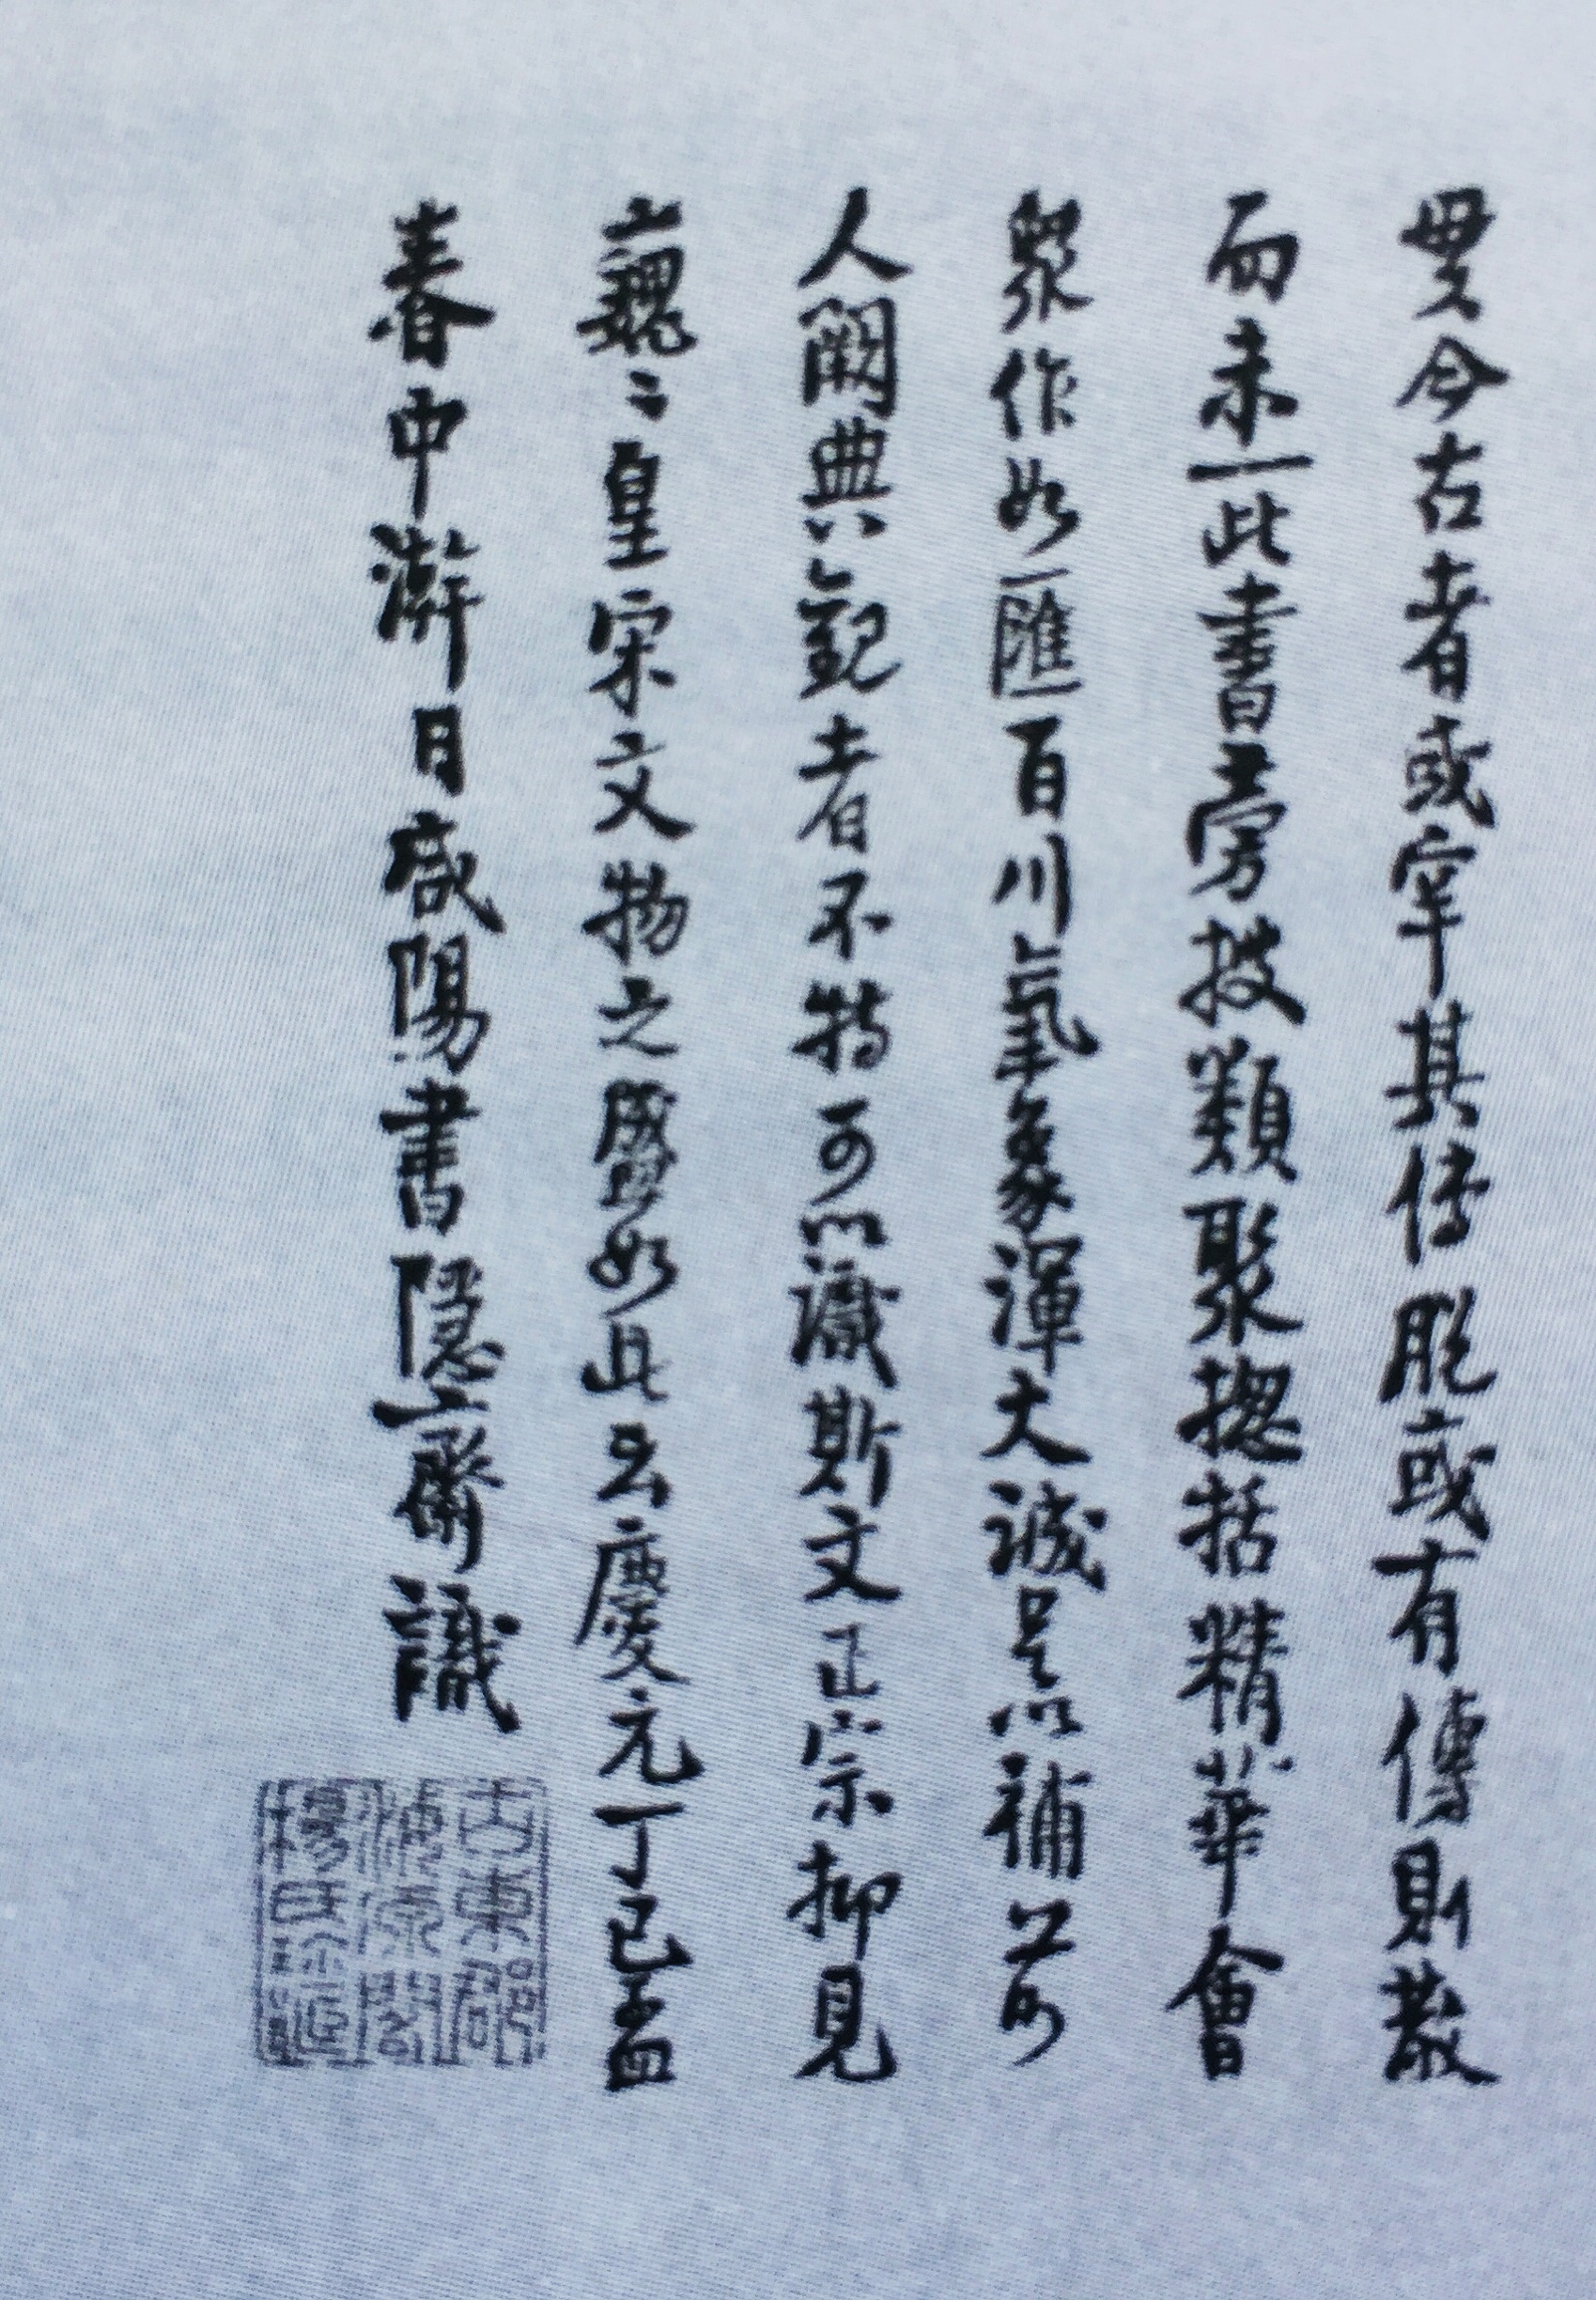 貫今古者或罕其传脫或有傳則散
而未一此書旁搜類聚揔括精華會
眾作如匯百川氣象渾大誠足以補前
人闕典觀者不特可以識斯文正宗抑見
巍〻皇宋文物之盛如此云慶元丁巳孟
春中澣日咸陽書隱齋識
古東郡
海源閣
楊氏珍藏